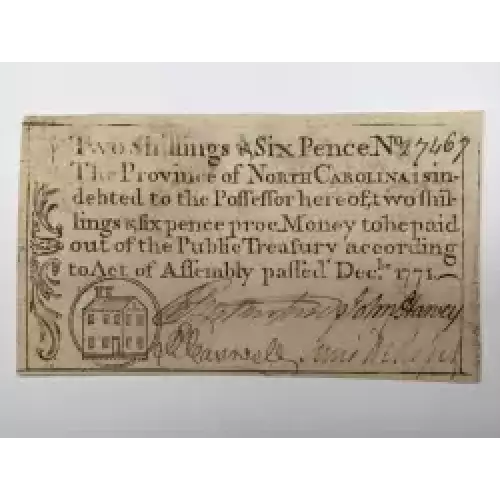 Two Shillings & Six Pence. No. 17467
The Province of NORTH CAROLINA is in-
debted to the Possessor hereof, two shil-
lings & six pence proc. Money to be paid
out of the Public Treasury according
to Act of Assembly passed Decbr. 1771.
John Harvey